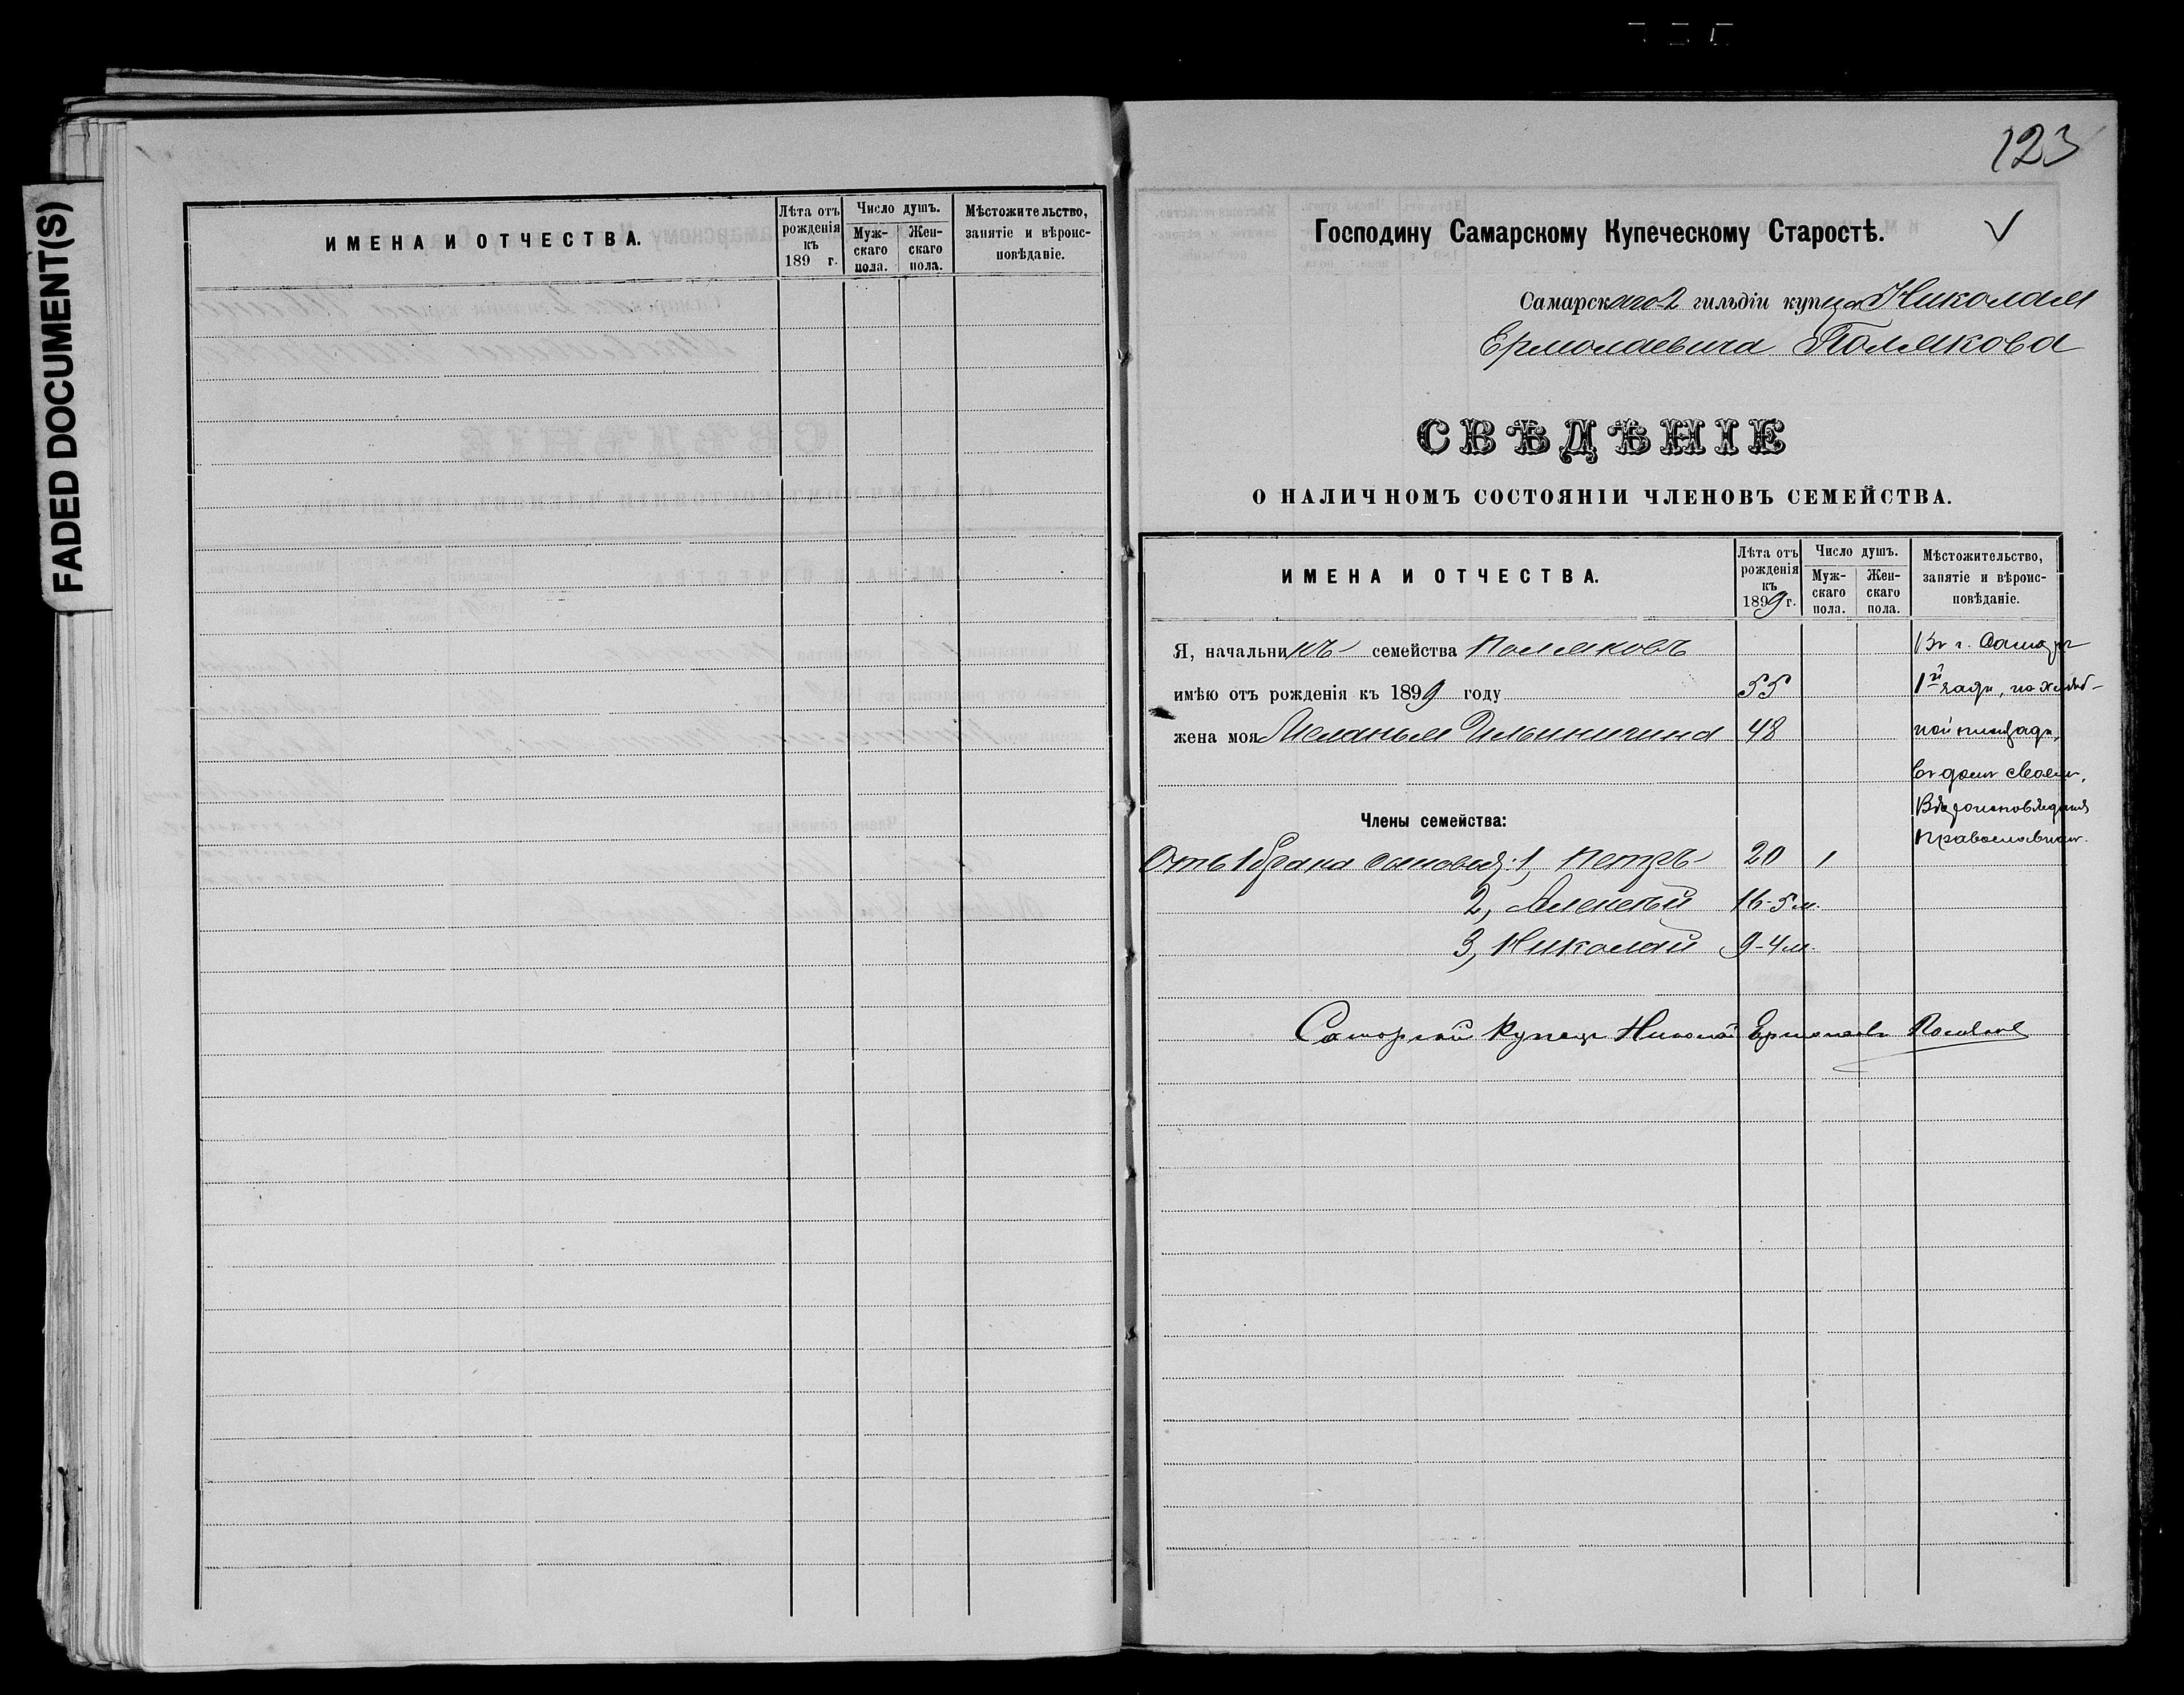 FADED DOCUMENT(S)
ИМЕНА И ОТЧЕСТВА.
Лѣта отъ рожденія къ 189 г.
Число душъ.
Мужскаго пола.
Женскаго пола.
Мѣстожительство, занятіе и вѣроисповѣданіе.
123
Господину Самарскому Купеческому Старостѣ.
Самарскаго 2 гильдіи купца Николая
Ермолаевича Полякова
СВѢДѢНІЕ
О НАЛИЧНОМЪ СОСТОЯНІИ ЧЛЕНОВЪ СЕМЕЙСТВА.
ИМЕНА И ОТЧЕСТВА.
Лѣта отъ рожденія къ 1899 г.
Число душъ.
Мужскаго пола.
Женскаго пола.
Мѣстожительство, занятіе и вѣроисповѣданіе.
Я, начальникъ семейства Поляковъ
имѣю отъ рожденія къ 1899 году 55
жена моя Меланья Ильинична 48
Члены семейства:
Отъ 1 брака сыновья: 1, Петръ 20 1
2, Алексѣй 16-5 м.
3, Николай 9-4 м.
Въ г. Самарѣ
1й части, на Хлѣб-
ной площади,
въ домѣ своемъ.
Вѣроисповѣданія
православнаго.
Самарскій Купецъ Николай Ермолаевъ Поляковъ